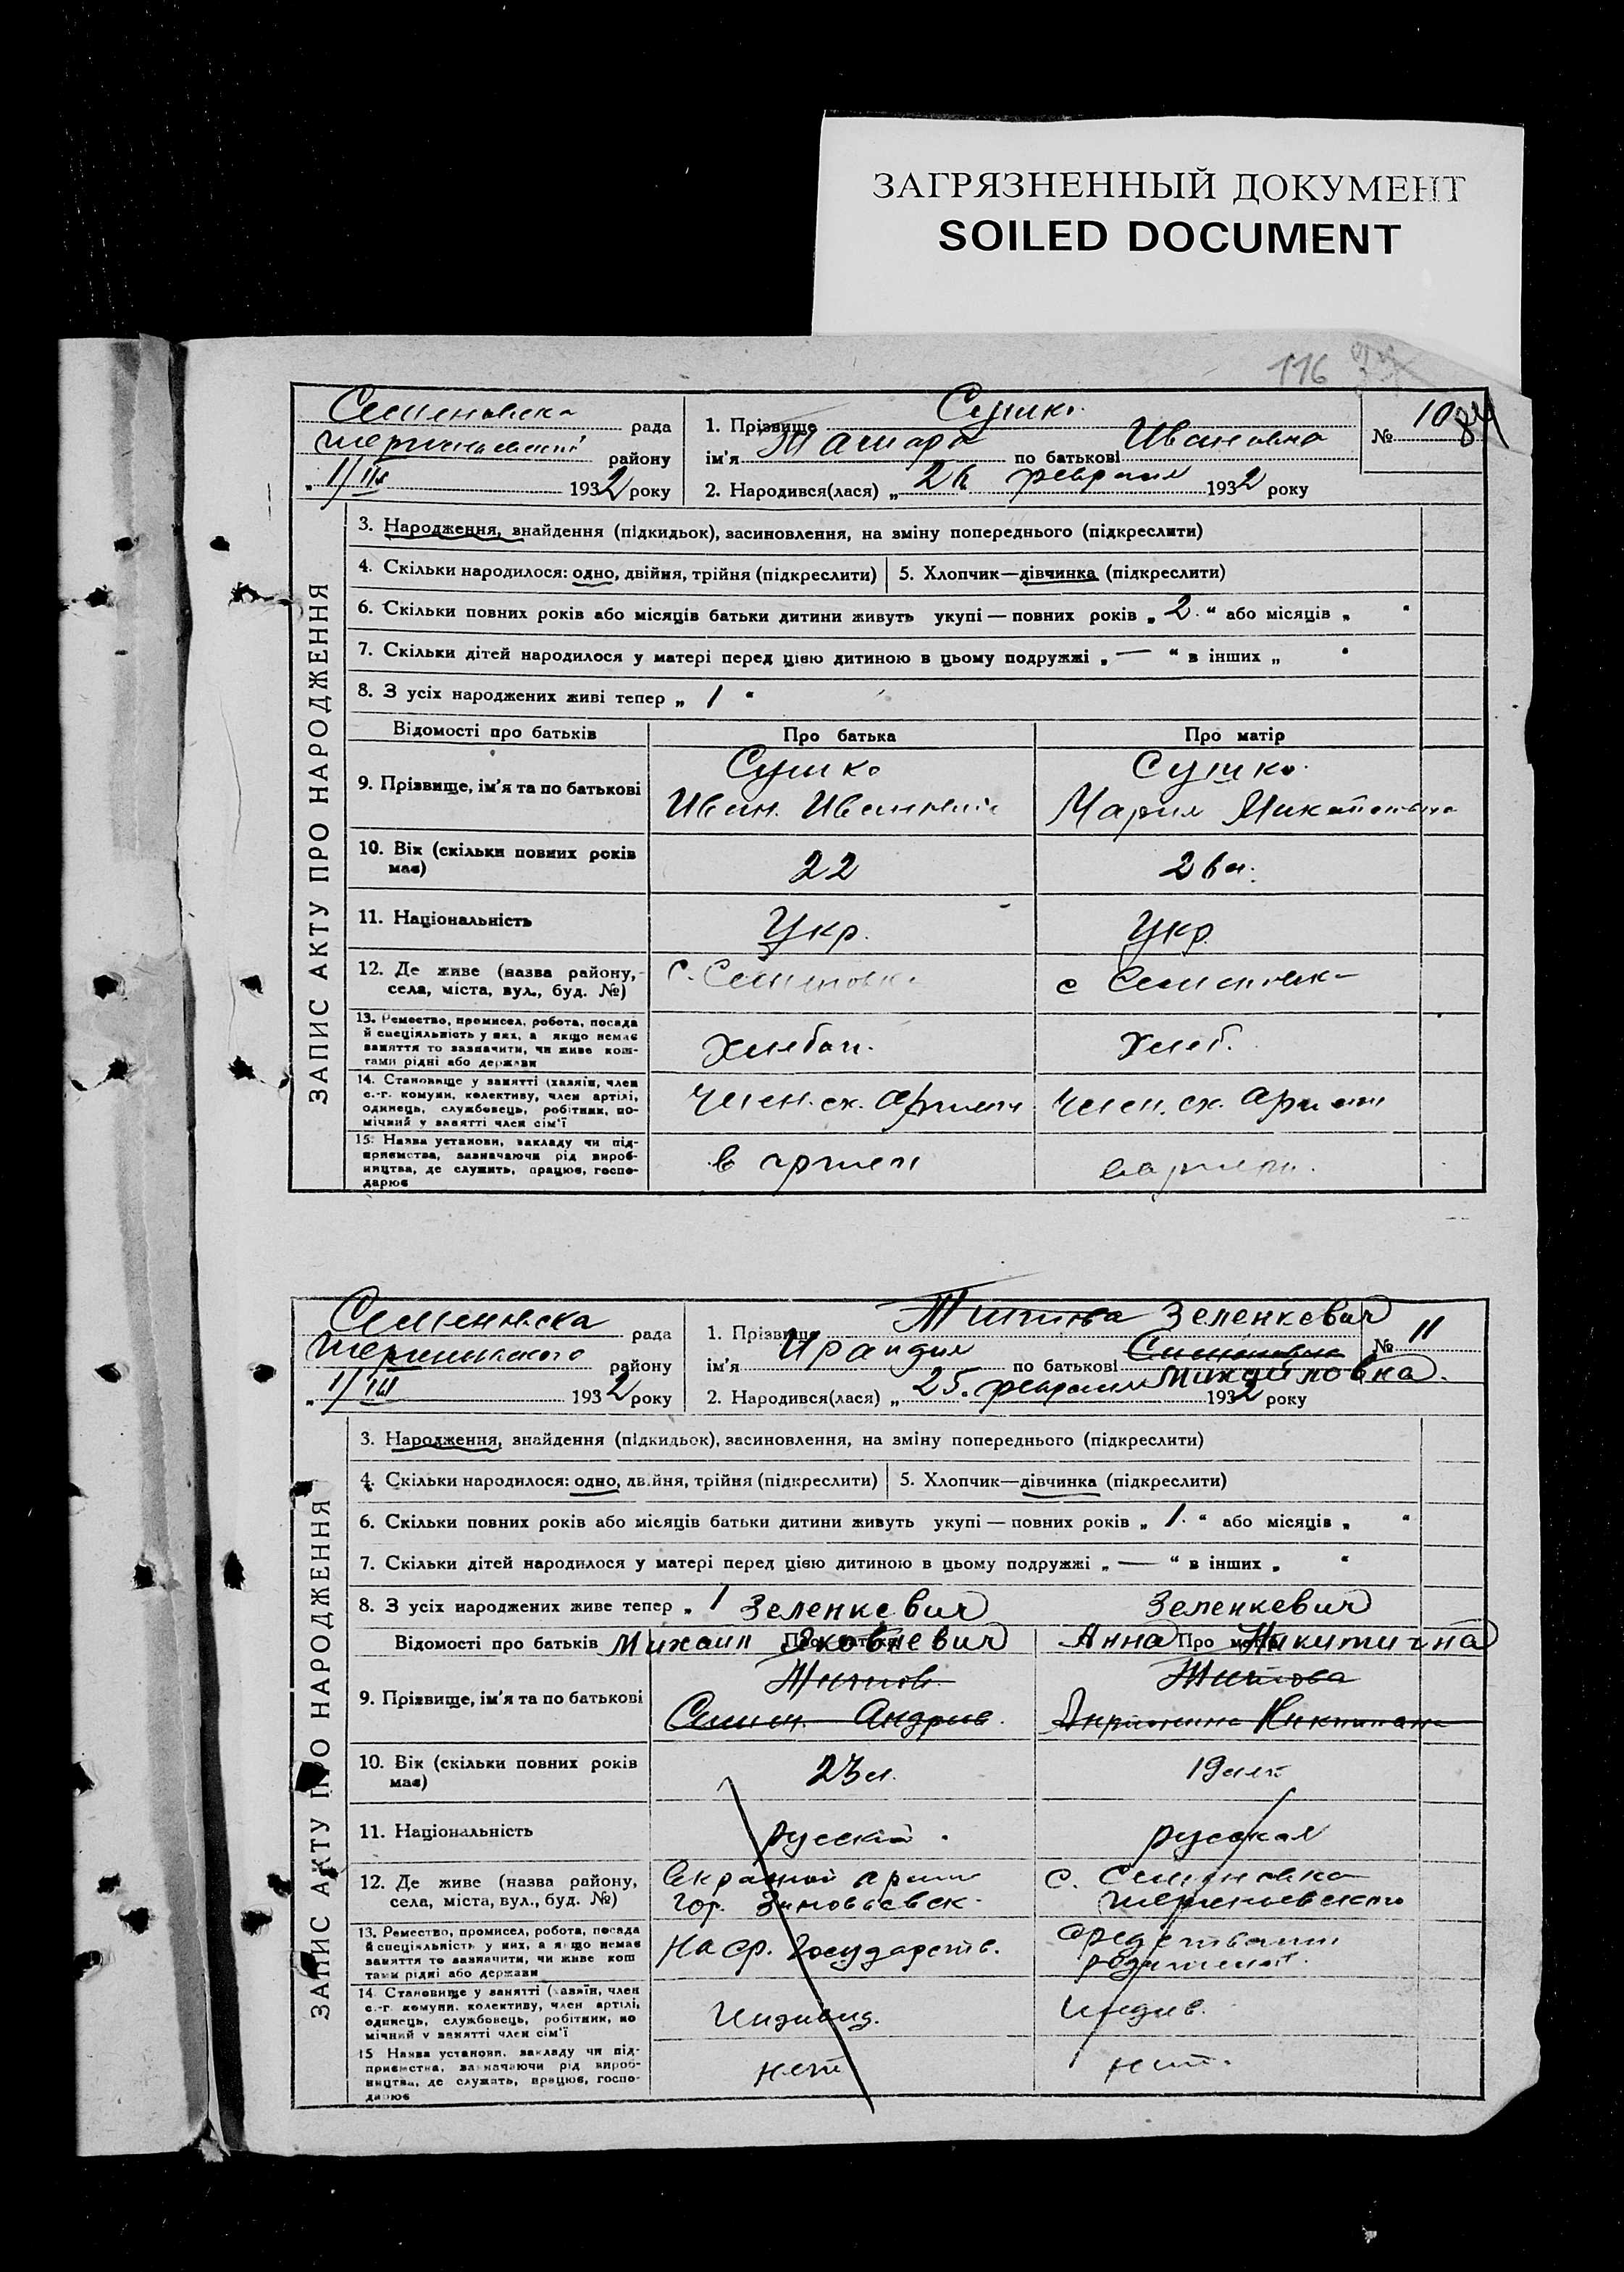 ЗАГРЯЗНЕННЫЙ ДОКУМЕНТ
SOILED DOCUMENT
116
рада
району
1/III 1932 року
1. Прізвище Сушко
ім'я Тамара по батькові Ивановна
2. Народився(лася) „ 26 февраля 1932 року
№ 10
84
ЗАПИС АКТУ ПРО НАРОДЖЕННЯ
3. Народження, знайдення (підкидьок), засиновлення, на зміну попереднього (підкреслити)
4. Скільки народилося: одно, двійня, трійня (підкреслити) 5. Хлопчик—дівчинка (підкреслити)
6. Скільки повних років або місяців батьки дитини живуть укупі — повних років „ 2. “ або місяців „ “
7. Скільки дітей народилося у матері перед цією дитиною в цьому подружжі „ — “ в інших „ “
8. З усіх народжених живі тепер „ 1 “
Відомості про батьків Про батька Про матір
9. Прізвище, ім'я та по батькові
Сушко Сушко
Иван Мария
10. Вік (скільки повних років має) 22 26 л.
11. Національність Укр. Укр.
12. Де живе (назва району, села, міста, вул., буд. №) с. Семеновка с Семеновка
13. Ремество, промисел, робота, посада й спеціяльність у них, а якщо немає заняття то зазначити, чи живе коштами рідні або держави
Хлеб.
14. Становище у занятті (хазяїн, член с.-г. комуни, колективу, член артілі, одинець, службовець, робітник, помічний у занятті член сім'ї
член. сх. артели член. сх. артели
15. Назва установи, закладу чи підприємства, зазначаючи рід виробництва, де служить, працює, господарює
в артели в артели.
рада
району
1/III 1932 року
1. Прізвище Титова Зеленкевич
ім'я Ираидия по батькові Михайловна
2. Народився(лася) „ 25. февраля 1932 року
№ 11
ЗАПИС АКТУ ПРО НАРОДЖЕННЯ
3. Народження, знайдення (підкидьок), засиновлення, на зміну попереднього (підкреслити)
4. Скільки народилося: одно, двійня, трійня (підкреслити) 5. Хлопчик—дівчинка (підкреслити)
6. Скільки повних років або місяців батьки дитини живуть укупі — повних років „ 1. “ або місяців „ “
7. Скільки дітей народилося у матері перед цією дитиною в цьому подружжі „ — “ в інших „ “
8. З усіх народжених живе тепер „ 1 Зеленкевич Зеленкевич
Відомості про батьків Михаил Яковлевич Анна Никитична
Про батька Про матір
9. Прізвище, ім'я та по батькові
Титов Титова
10. Вік (скільки повних років має) 23 л. 19 лет
11. Національність русский. русская
12. Де живе (назва району, села, міста, вул., буд. №)
гор. Зиновьевск с. Семеновка
13. Ремество, промисел, робота, посада й спеціяльність у них, а якщо немає заняття то зазначити, чи живе коштами рідні або держави
На ср. Государств. средствами
14. Становище у занятті (хазяїн, член с.-г. комуни, колективу, член артілі, одинець, службовець, робітник, помічний у занятті член сім'ї
Индивид. Индив.
15 Назва установи, закладу чи підприємства, зазначаючи рід виробництва, де служить, працює, господарює
нет нет.